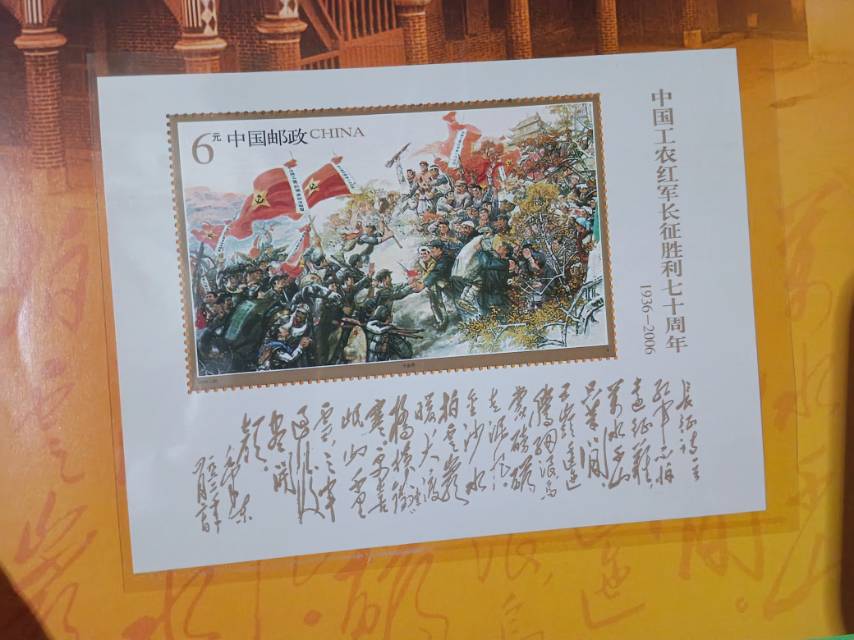 6元 中国邮政CHINA
中国工农红军长征胜利七十周年
1936—2006
长征诗一首
红军不怕
远征难
万水千山
只等闲
五岭逶迤
腾细浪乌
蒙磅礴
走泥丸
金沙水
拍云岩
暖大渡
桥横铁
索寒更喜
岷山千里
雪三军
过后
尽开
颜
毛泽东